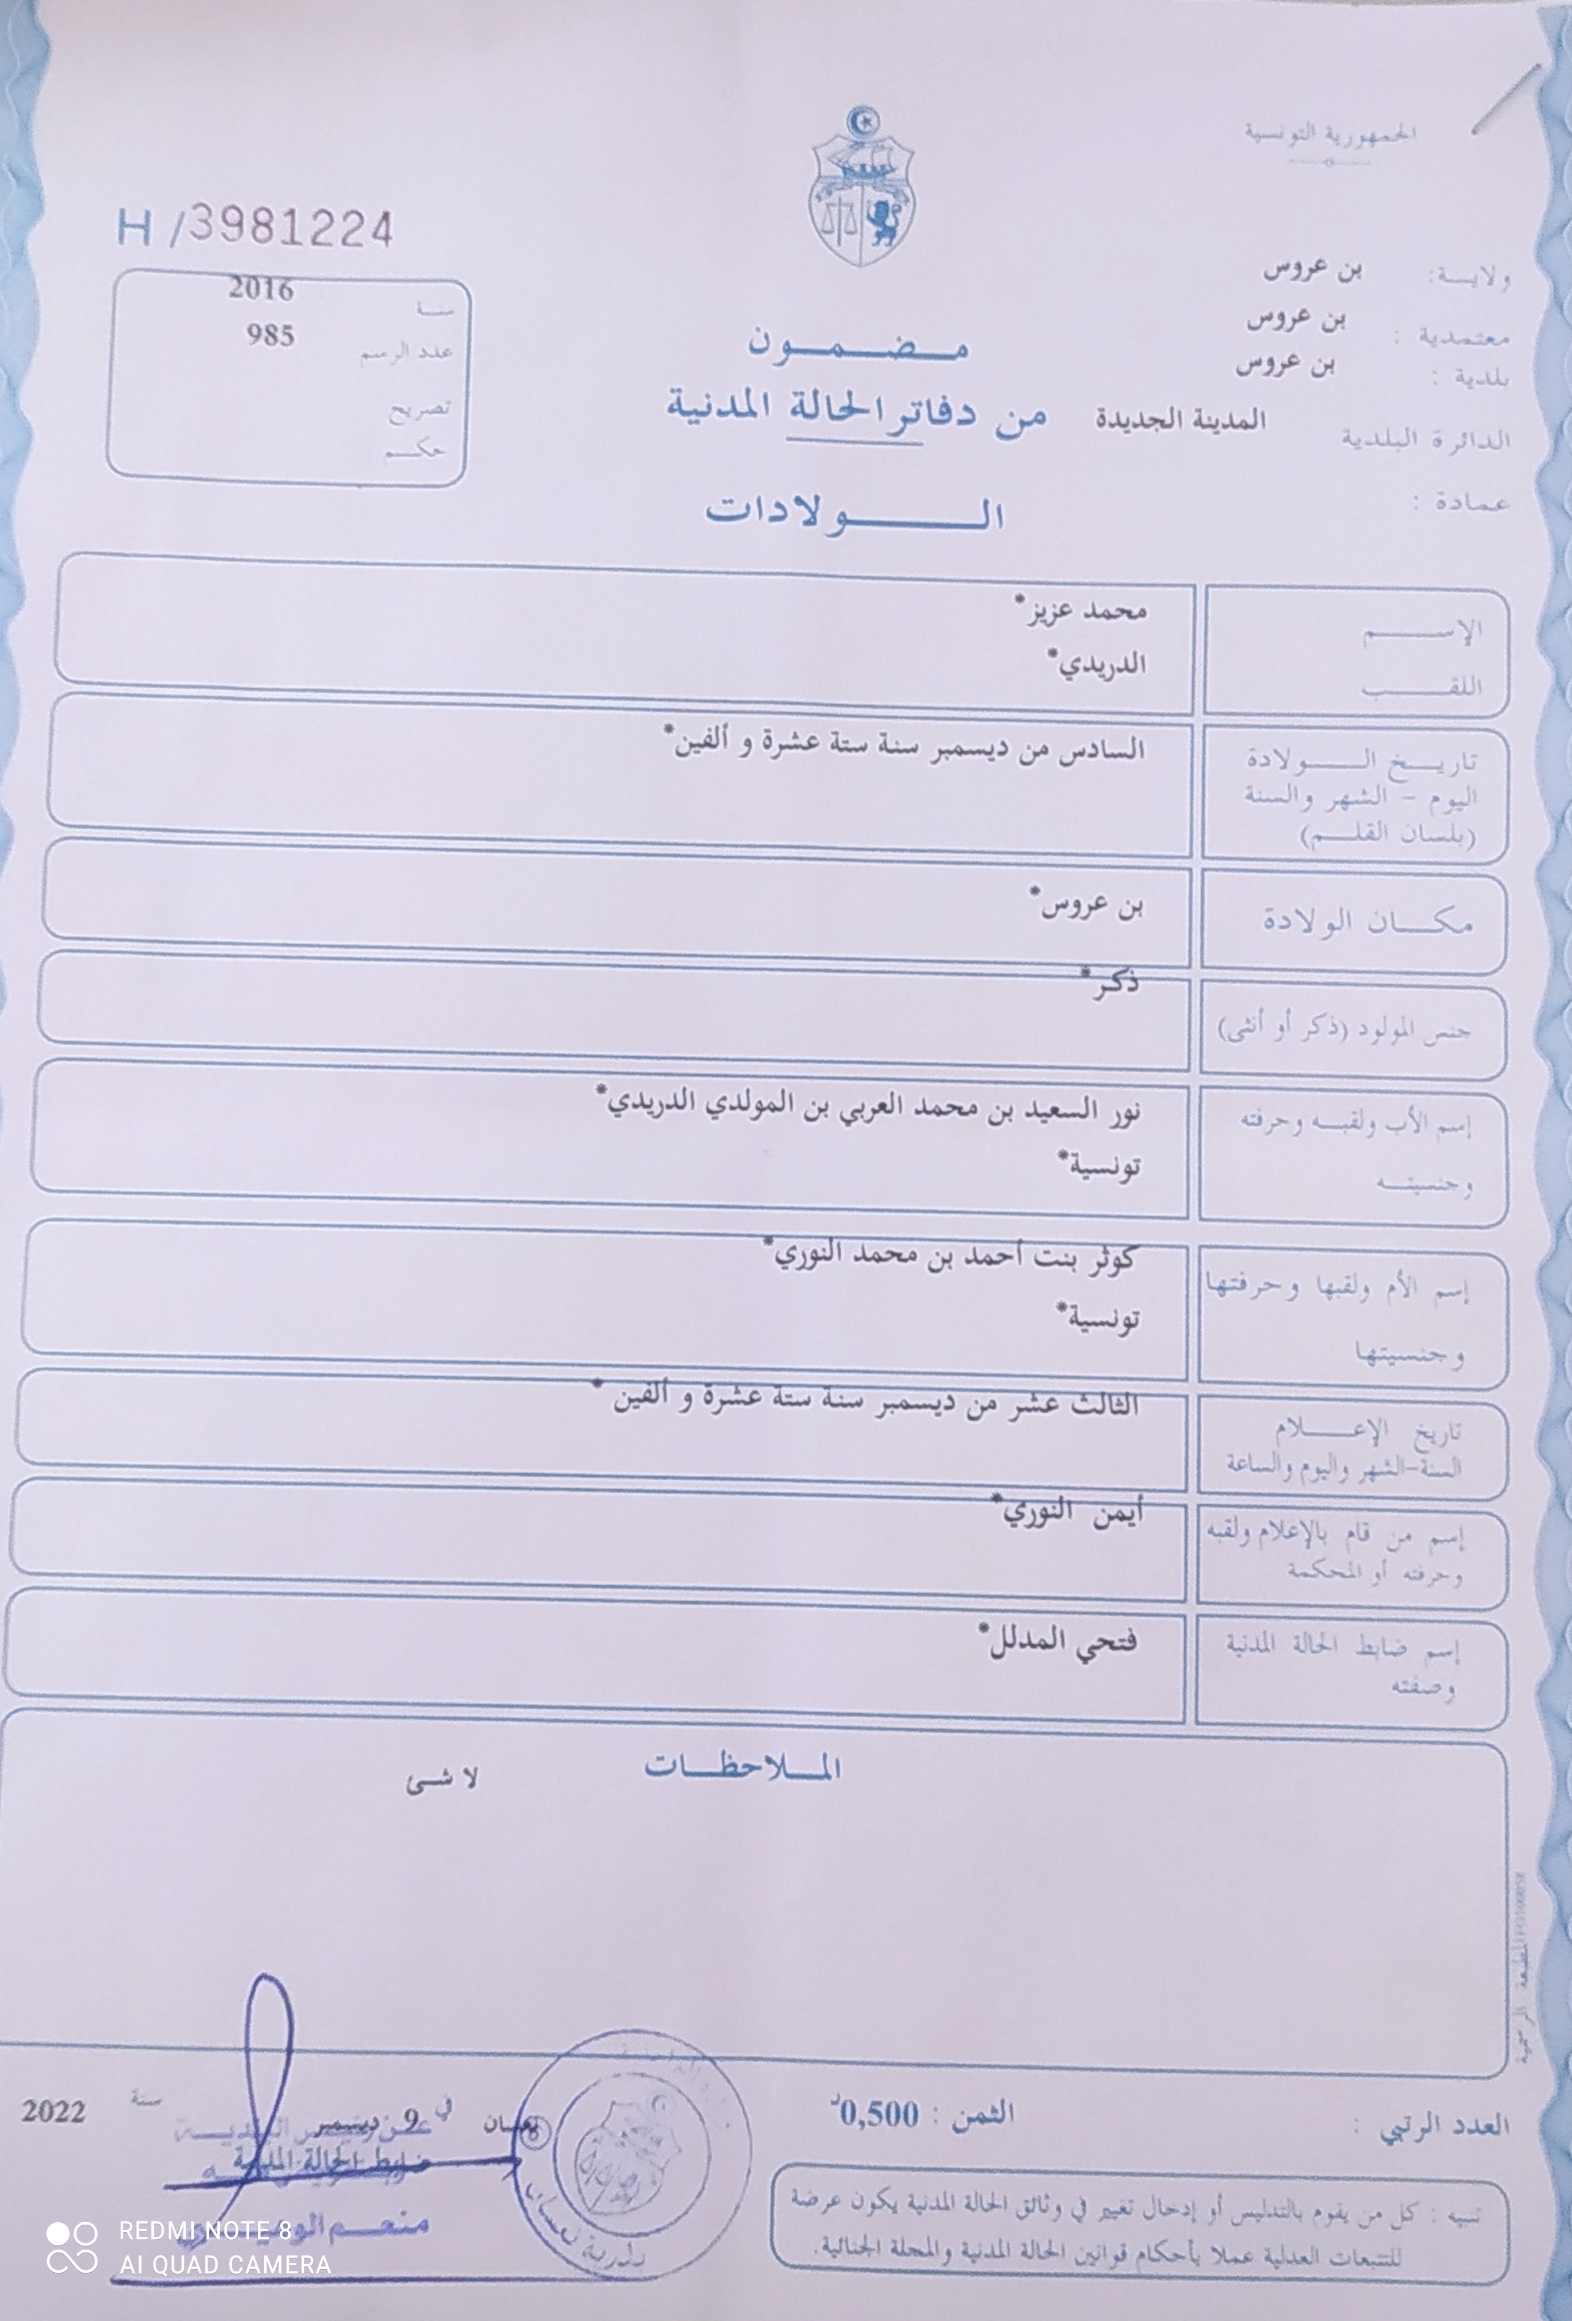 الجمهورية التونسية
H /3981224
ولايــة: بن عروس
معتمدية : بن عروس
بلدية : بن عروس
الدائرة البلدية المدينة الجديدة
عمادة :
سنة 2016
عدد الرسم 985
تصريح
حكم
مضمون
من دفاتر الحالة المدنية
الولادات
الإسم محمد عزيز*
اللقب الدريدي*
تاريخ الولادة السادس من ديسمبر سنة ستة عشرة و ألفين*
اليوم - الشهر والسنة
(بلسان القلم)
مكان الولادة بن عروس*
جنس المولود (ذكر أو أنثى) ذكر*
إسم الأب ولقبه وحرفته نور السعيد بن محمد العربي بن المولدي الدريدي*
وجنسيته تونسية*
إسم الأم ولقبها وحرفتها كوثر بنت أحمد بن محمد النوري*
وجنسيتها تونسية*
تاريخ الإعلام الثالث عشر من ديسمبر سنة ستة عشرة و ألفين *
السنة-الشهر واليوم والساعة
إسم من قام بالإعلام ولقبه أيمن النوري*
وحرفته أو المحكمة
إسم ضابط الحالة المدنية فتحي المدلل*
وصفته
الملاحظات
لا شئ
العدد الرتبي :
الثمن : 0,500د
نعسان في 9 ديسمبر سنة 2022
ضابط الحالة المدنية
بلدية نعسان
تنبيه : كل من يقوم بالتدليس أو إدخال تغيير في وثائق الحالة المدنية يكون عرضة
للتتبعات العدلية عملا بأحكام قوانين الحالة المدنية والمجلة الجنائية.
المطبعة الرسمية
REDMI NOTE 8
AI QUAD CAMERA